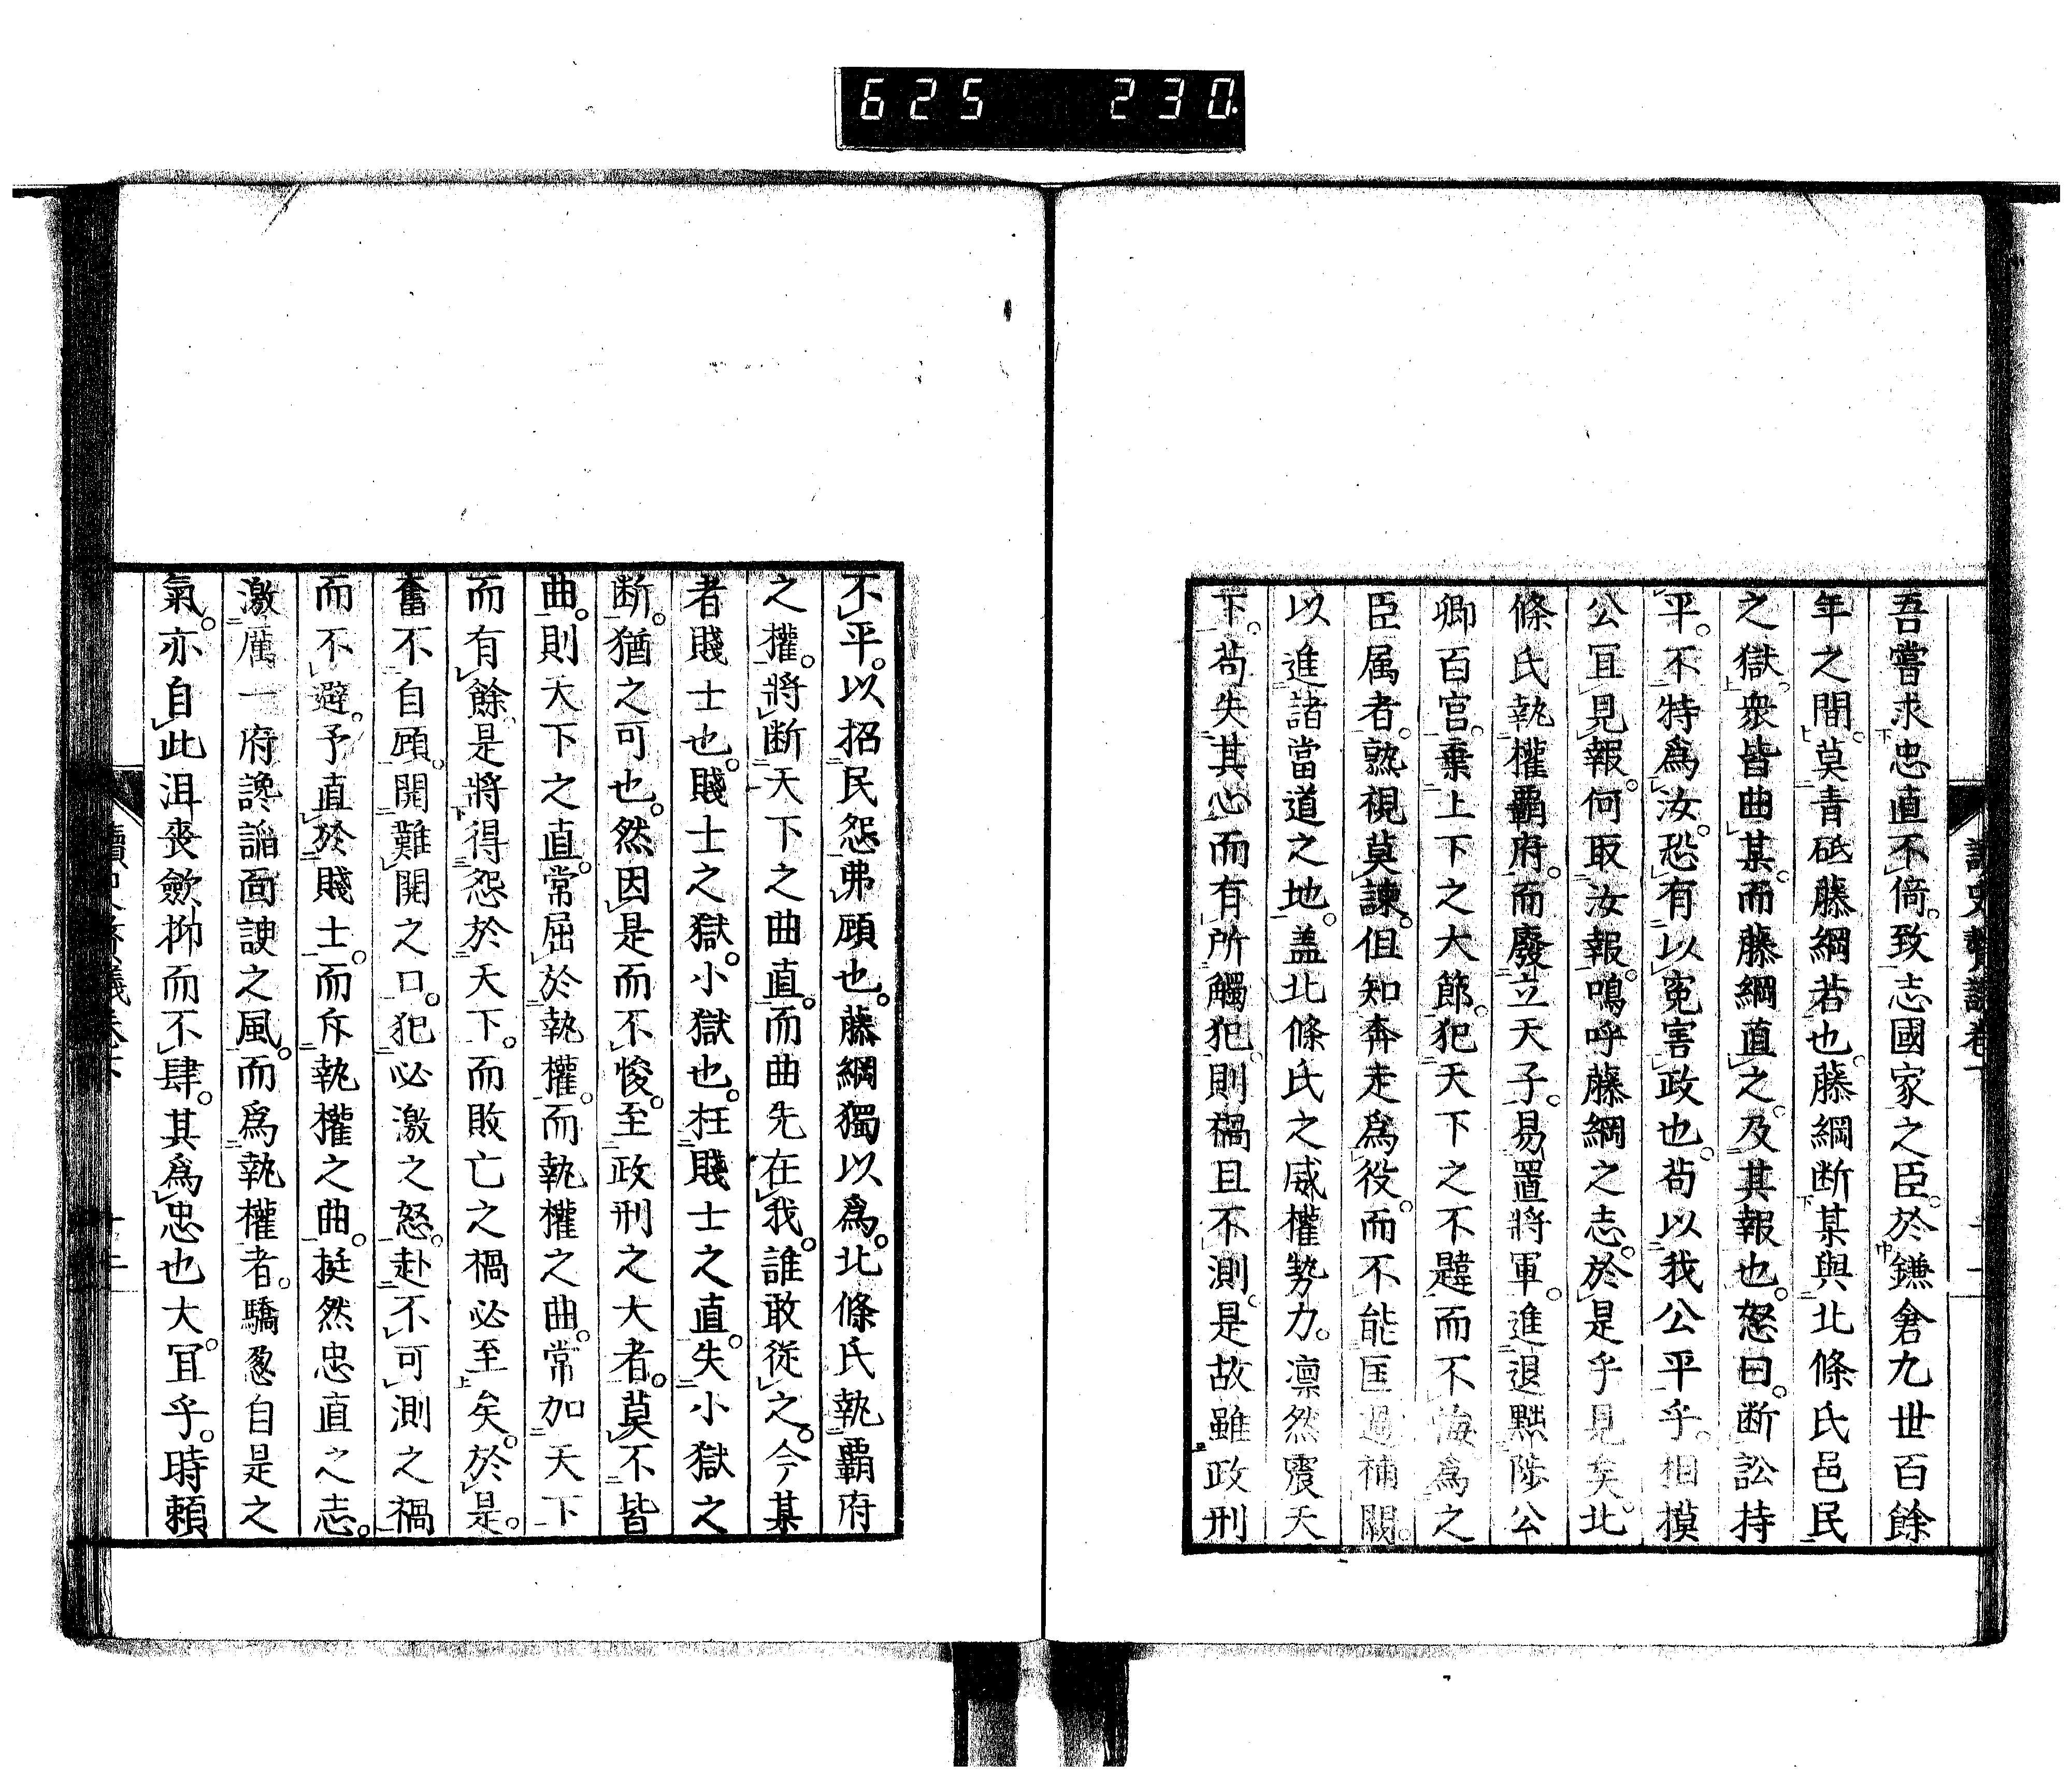 625 230
吾嘗求忠直不倚。致志國家之臣。於鎌倉九世百餘
年之間。莫青砥藤綱若也。藤綱断某與北條氏邑民
之獄。衆皆曲某。而藤綱直之。及其報也。怒曰。断訟持
平。不特爲汝。恐有以寃害政也。茍以我公平乎。相摸
公冝見報。何取汝報。嗚呼藤綱之志。於是乎見矣。北
條氏執權覇府。而廢立天子。易置將軍。進退黜陟公
卿百官。棄上下之大節。犯天下之不韙而不悔。爲之
臣属者。熟視莫諫。但知奔走爲役。而不能匡過補闕。
以進諸當道之地。盖北條氏之威權勢力。凛然震天
下。茍失其心而有所觸犯。則禍且不測。是故雖政刑
不平。以招民怨弗顧也。藤綱獨以爲。北條氏執覇府
之權。將断天下之曲直。而曲先在我。誰敢從之。今某
者賤士也。賤士之獄。小獄也。枉賤士之直。失小獄之
断。猶之可也。然因是而不悛。至政刑之大者。莫不皆
曲。則天下之直。常屈於執權。而執權之曲。常加天下
而有餘。是將得怨於天下。而敗亡之禍必至矣。於是。
奮不自顧。開難開之口。犯必激之怒。赴不可測之禍
而不避。予直於賤士。而斥執權之曲。挺然忠直之志。
激厲一府讒謟面諛之風。而爲執權者。驕慢自是之
氣。亦自此沮喪歛抑而不肆。其爲忠也大。冝乎。時頼